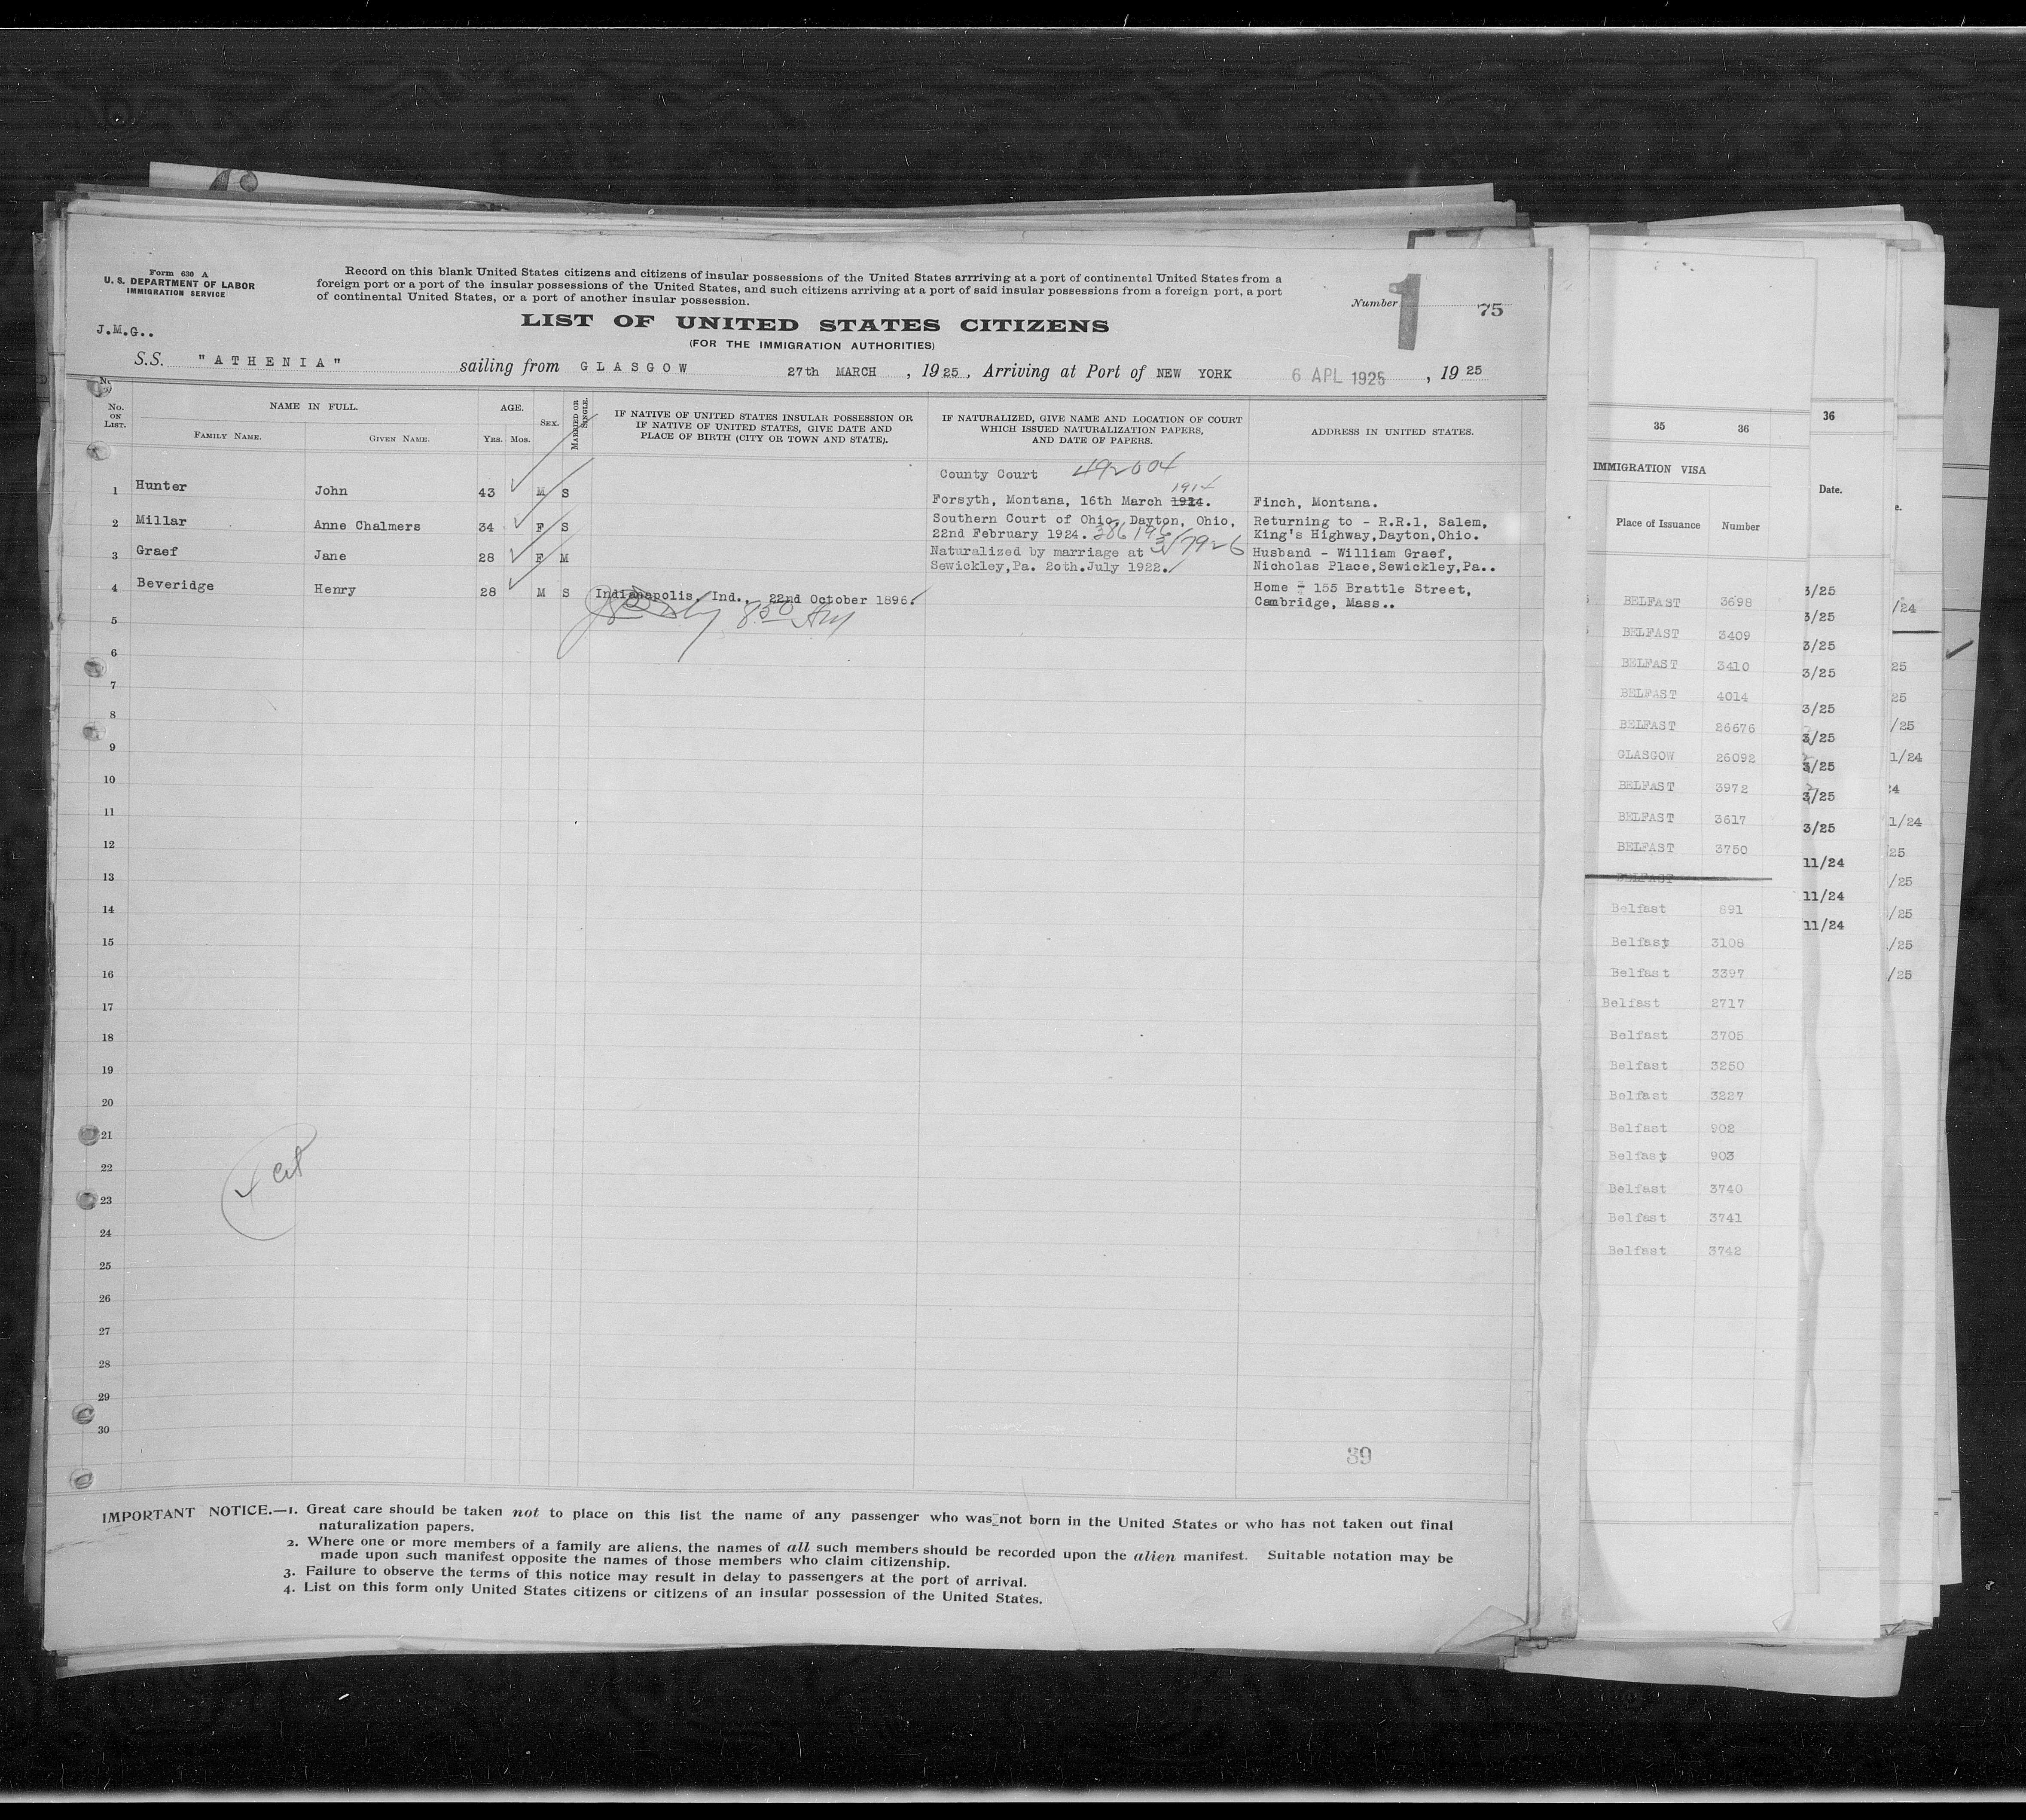 Form 630 A
U. S. DEPARTMENT OF LABOR
IMMIGRATION SERVICE
J.M.G..
Record on this blank United States citizens and citizens of insular possessions of the United States arrriving at a port of continental United States from a
foreign port or a port of the insular possessions of the United States, and such citizens arriving at a port of said insular possessions from a foreign port, a port
of continental United States, or a port of another insular possession.
Number 1 75
LIST OF UNITED STATES CITIZENS
(FOR THE IMMIGRATION AUTHORITIES)
S.S. "ATHENIA" sailing from GLASGOW 27th MARCH, 1925, Arriving at Port of NEW YORK 6 APL 1925, 1925
No. ON LIST.
NAME IN FULL.
FAMILY NAME. GIVEN NAME.
AGE.
YRS. MOS.
SEX.
MARRIED OR SINGLE.
IF NATIVE OF UNITED STATES INSULAR POSSESSION OR
IF NATIVE OF UNITED STATES, GIVE DATE AND
PLACE OF BIRTH (CITY OR TOWN AND STATE).
IF NATURALIZED, GIVE NAME AND LOCATION OF COURT
WHICH ISSUED NATURALIZATION PAPERS,
AND DATE OF PAPERS.
ADDRESS IN UNITED STATES.
County Court 492604
1914
1 Hunter John 43 M S Forsyth, Montana, 16th March 1924. Finch, Montana.
2 Millar Anne Chalmers 34 F S Southern Court of Ohio, Dayton, Ohio, Returning to - R.R.1, Salem,
22nd February 1924. King's Highway,Dayton,Ohio.
3 Graef Jane 28 F M Naturalized by marriage at Husband - William Graef,
Sewickley,Pa. 20th.July 1922. Nicholas Place,Sewickley,Pa..
4 Beveridge Henry 28 M S Indianapolis, Ind., 22nd October 1896. Home - 155 Brattle Street,
Cambridge, Mass..
5
6
7
8
9
10
11
12
13
14
15
16
17
18
19
20
21
22
23
24
25
26
27
28
29
30
39
IMPORTANT NOTICE.—1. Great care should be taken not to place on this list the name of any passenger who was not born in the United States or who has not taken out final
naturalization papers.
2. Where one or more members of a family are aliens, the names of all such members should be recorded upon the alien manifest. Suitable notation may be
made upon such manifest opposite the names of those members who claim citizenship.
3. Failure to observe the terms of this notice may result in delay to passengers at the port of arrival.
4. List on this form only United States citizens or citizens of an insular possession of the United States.
35 36
IMMIGRATION VISA
Place of Issuance Number
BELFAST 3698
BELFAST 3409
BELFAST 3410
BELFAST 4014
BELFAST 26676
GLASGOW 26092
BELFAST 3972
BELFAST 3617
BELFAST 3750
BELFAST
Belfast 891
Belfast 3108
Belfast 3397
Belfast 2717
Belfast 3705
Belfast 3250
Belfast 3227
Belfast 902
Belfast 903
Belfast 3740
Belfast 3741
Belfast 3742
36
Date.
3/25
3/25
3/25
3/25
3/25
3/25
3/25
3/25
3/25
11/24
11/24
11/24
/24
25
25
/25
1/24
24
1/24
25
/25
/25
/25
/25